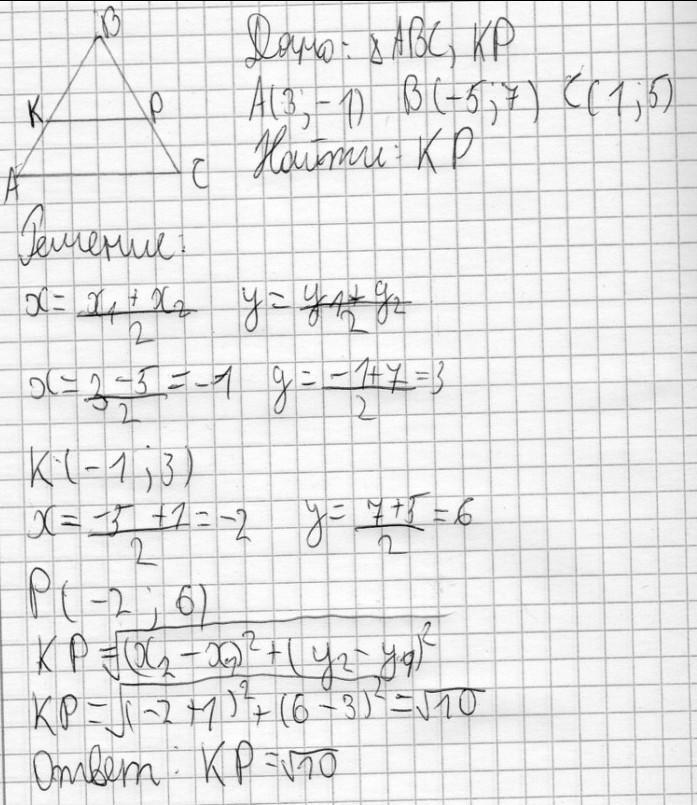 B
K P
A C
Дано: △ABC, KP
A(3;-1) B(-5;7) C(1;5)
Найти: KP
Решение:
x = (x₁ + x₂)/2 y = (y₁ + y₂)/2
x = (3-5)/2 = -1 y = (-1+7)/2 = 3
K(-1;3)
x = (-5+1)/2 = -2 y = (7+5)/2 = 6
P(-2;6)
KP = √((x₂ - x₁)² + (y₂ - y₁)²)
KP = √((-2+1)² + (6-3)²) = √10
Ответ: KP = √10